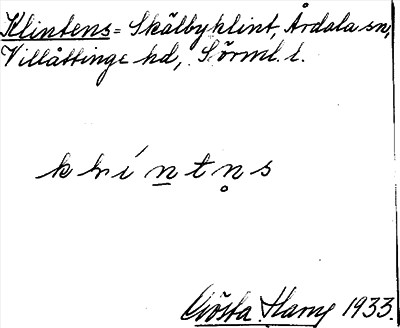 Klintens = Skälbyklint, Årdala sn,
Villåttinge hd, Sörml. l.
k l í n̲ t n̥ s
Gösta Hamp 1933.